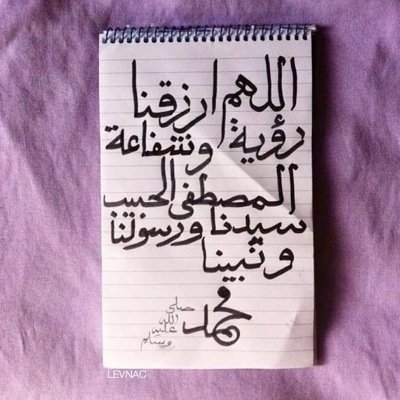 اللهم ارزقنا
رؤية وشفاعة
المصطفى الحبيب
سيدنا ورسولنا
ونبينا
محمد
صلى
الله
عليه
وسلم
LEVNAC